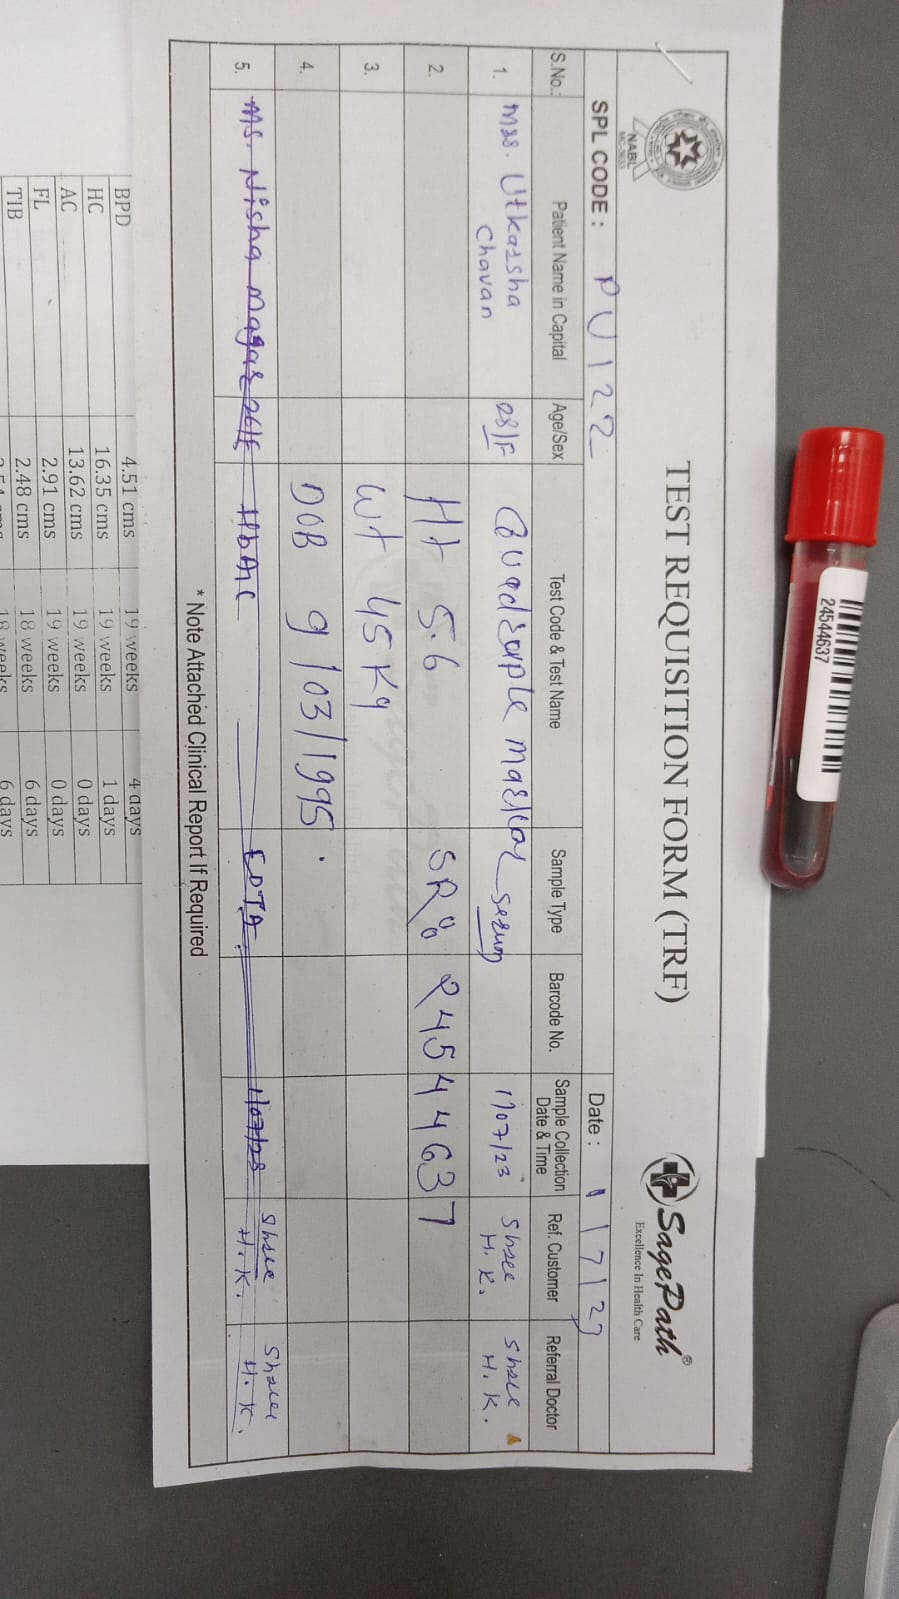 NABL
MC-3633
TEST REQUISITION FORM (TRF)
SagePath®
Excellence In Health Care
SPL CODE : PU122 Date : 1/7/23
S.No.: Patient Name in Capital Age/Sex Test Code & Test Name Sample Type Barcode No. Sample Collection Date & Time Ref. Customer Referral Doctor
1. Mrs. Utkarsha Chavan 28/F Quadraple marker serum 1/07/23 Shree H.K. Shree H.K.
2. Ht 5.6 SR% 24544637
3. Wt 45 Kg
4. DOB 9/03/1995.
5. Ms. Nisha Magar 26/F HbA1C EDTA 1/07/23 Shree H.K. Shree H.K.
* Note Attached Clinical Report If Required
24544637
BPD 4.51 cms 19 weeks 4 days
HC 16.35 cms 19 weeks 1 days
AC 13.62 cms 19 weeks 0 days
FL 2.91 cms 19 weeks 0 days
TIB 2.48 cms 18 weeks 6 days
18 weeks 6 days